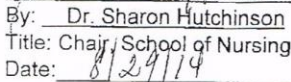 By: Dr. Sharon Hutchinson
Title: Chair, School of Nursing
Date: 8/29/14